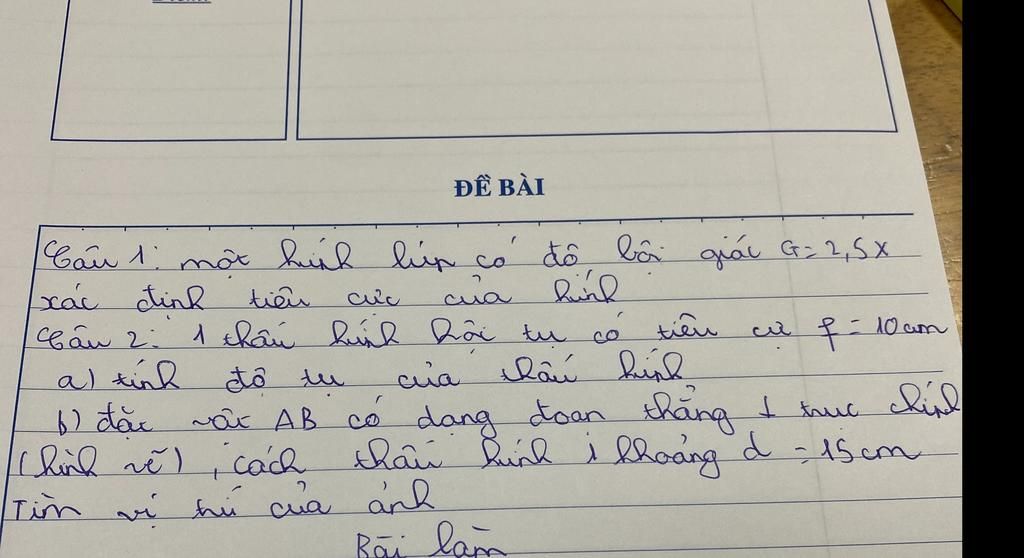 ĐỀ BÀI
Câu 1: một kính lúp có độ bội giác G = 2,5X
xác định tiêu cực của kính
Câu 2: 1 thấu kính hội tụ có tiêu cự f = 10cm
a) tính độ tụ của thấu kính
b) đặt vật AB có dạng đoạn thẳng ⊥ trục chính
(hình vẽ), cách thấu kính 1 khoảng d = 15cm
Tìm vị trí của ảnh
Bài làm